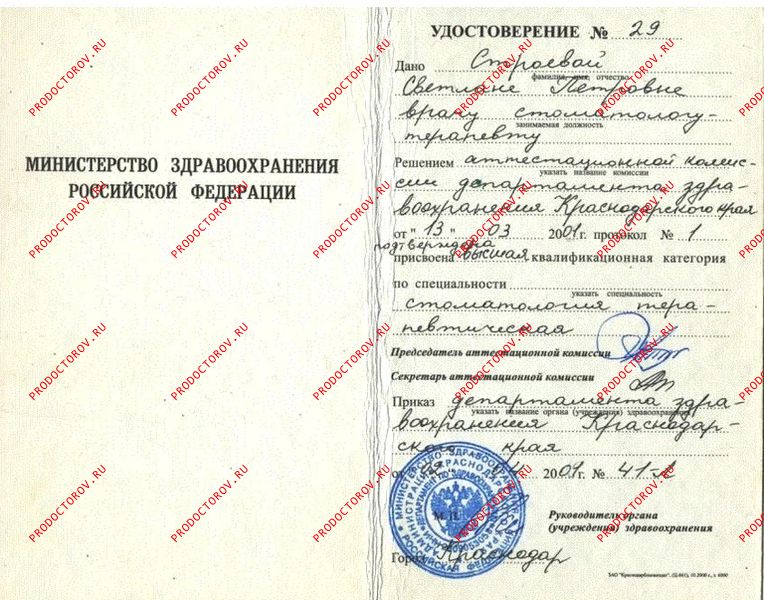 МИНИСТЕРСТВО ЗДРАВООХРАНЕНИЯ
РОССИЙСКОЙ ФЕДЕРАЦИИ
УДОСТОВЕРЕНИЕ № 29
Дано Строевой
фамилия, имя, отчество
Светлане Петровне
врачу стоматологу-
занимаемая должность
терапевту
Решением аттестационной комис-
указать название комиссии
сии департамента здра-
воохранения Краснодарского края
от "13" 03 2001г. протокол № 1
подтверждена
присвоена высшая квалификационная категория
по специальности
указать специальность
стоматология тера-
певтическая
Председатель аттестационной комиссии
Секретарь аттестационной комиссии
Приказ департамента здра-
указать название органа (учреждения) здравоохранения
воохранения Краснодар-
ского края
от 2001г. № 41-Л
М.П.
Руководитель органа
(учреждения) здравоохранения
Город Краснодар
PRODOCTOROV.RU